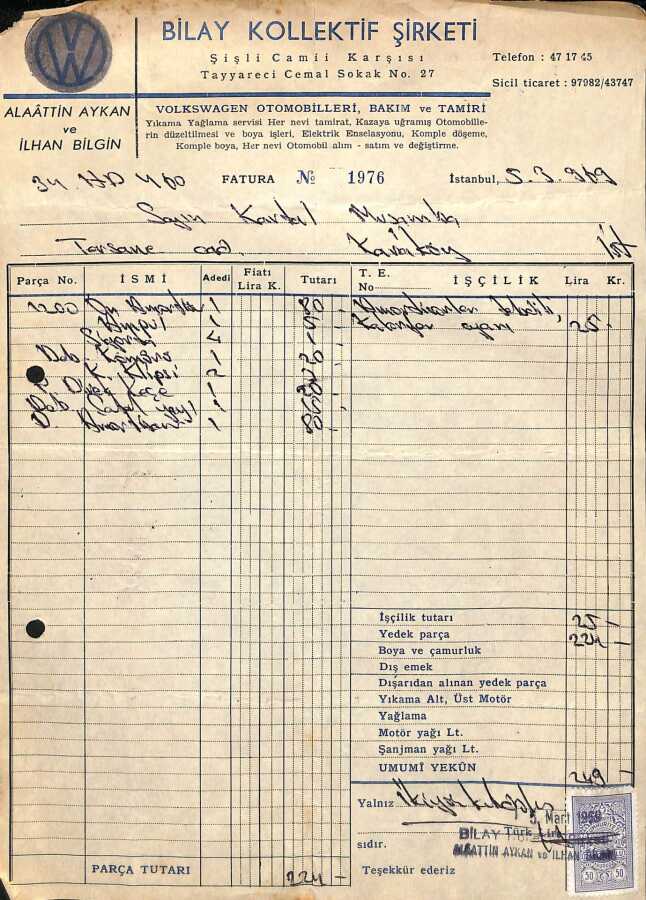 BİLAY KOLLEKTİF ŞİRKETİ
Şişli Camii Karşısı
Tayyareci Cemal Sokak No. 27
Telefon : 47 17 45
Sicil ticaret : 97982/43747
ALAÂTTİN AYKAN
ve
İLHAN BİLGİN
VOLKSWAGEN OTOMOBİLLERİ, BAKIM ve TAMİRİ
Yıkama Yağlama servisi Her nevi tamirat, Kazaya uğramış Otomobille-
rin düzeltilmesi ve boya işleri, Elektrik Enselasyonu, Komple döşeme,
Komple boya, Her nevi Otomobil alım - satım ve değiştirme.
34 HD 460 FATURA № 1976 İstanbul, 5.3.969
Sayın Kartal Muşamba
Tersane cad. Karaköy İst
Parça No. İSMİ Adedi Fiatı Lira K. Tutarı T. E. No İŞÇİLİK Lira Kr.
1200 Ön Amortisör 1 80 Amortisörler tebdili,
Ampul 1 Karbüratör ayarı 25 -
4
1
2
1
1
1
İşçilik tutarı 25 -
Yedek parça 224 -
Boya ve çamurluk
Dış emek
Dışarıdan alınan yedek parça
Yıkama Alt, Üst Motör
Yağlama
Motör yağı Lt.
Şanjman yağı Lt.
UMUMÎ YEKÛN 249 -
Yalnız İkiyüzkırkdokuz
5 Mart 1969
Türk Lira
BİLAY
ALAATTİN AYKAN ve İLHAN BİLGİN
sıdır.
PARÇA TUTARI 224 - Teşekkür ederiz
50 50